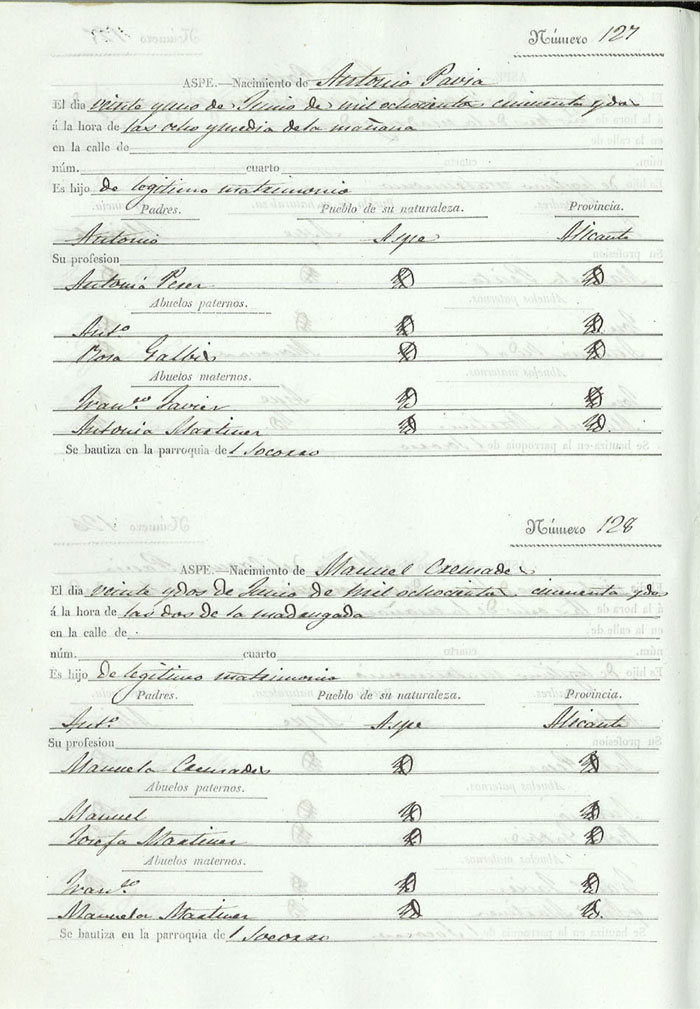 Número 127
ASPE.—Nacimiento de Antonio Pavia
El dia veinte y uno de Junio de mil ochocientos cincuenta y dos
á la hora de las ocho y media de la mañana
en la calle de
núm. cuarto
Es hijo de legitimo matrimonio
Padres. Pueblo de su naturaleza. Provincia.
Antonio Aspe Alicante
Su profesion
Antonia Perez
Abuelos paternos.
Antº
Rosa Galbis
Abuelos maternos.
Franco Javier
Antonia Martinez
Se bautiza en la parroquia de l Socorro
Número 128
ASPE.—Nacimiento de Manuel Cremades
El dia veinte y dos de Junio de mil ochocientos cincuenta y dos
á la hora de las dos de la madrugada
en la calle de
núm. cuarto
Es hijo de legitimo matrimonio
Padres. Pueblo de su naturaleza. Provincia.
Antº Aspe Alicante
Su profesion
Manuela Cremades
Abuelos paternos.
Manuel
Josefa Martinez
Abuelos maternos.
Franco
Manuela Martinez
Se bautiza en la parroquia de l Socorro